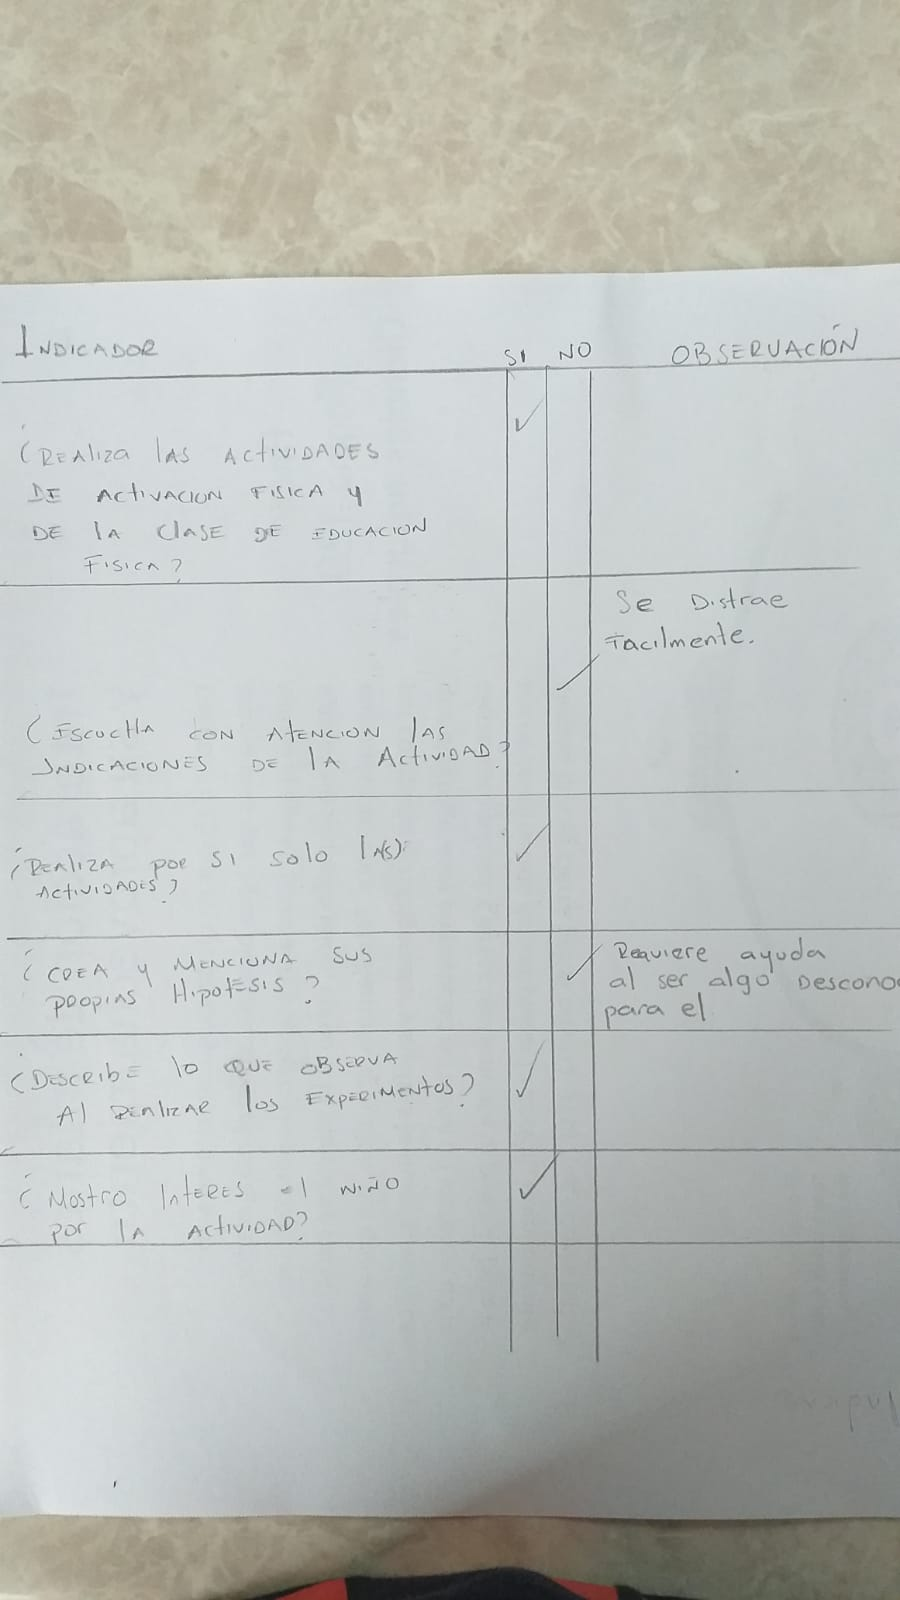 INDICADOR SI NO OBSERVACIÓN
¿REALIZA LAS ACTIVIDADES
DE ACTIVACION FISICA Y
DE LA CLASE DE EDUCACION
FISICA?
Se Distrae
Facilmente.
¿ESCUCHA CON ATENCION LAS
INDICACIONES DE LA ACTIVIDAD?
¿REALIZA POR SI SOLO LA(S)
ACTIVIDADES?
¿CREA Y MENCIONA SUS
PROPIAS HIPOTESIS?
Requiere ayuda
al ser algo DESCONO
para el
¿DESCRIBE lo QUE OBSERVA
AL REALIZAR los EXPERIMENTOS?
¿MOSTRO INTERES el NIÑO
POR LA ACTIVIDAD?